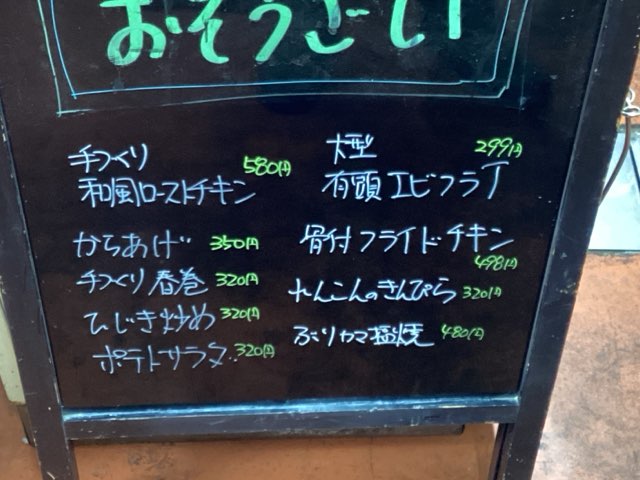 おそうざい
手づくり
和風ローストチキン 580円
からあげ 350円
手づくり春巻 320円
ひじき炒め 320円
ポテトサラダ 320円
大型 299円
有頭エビフライ
骨付フライドチキン
498円
れんこんのきんぴら 320円
ぶりカマ塩焼 480円